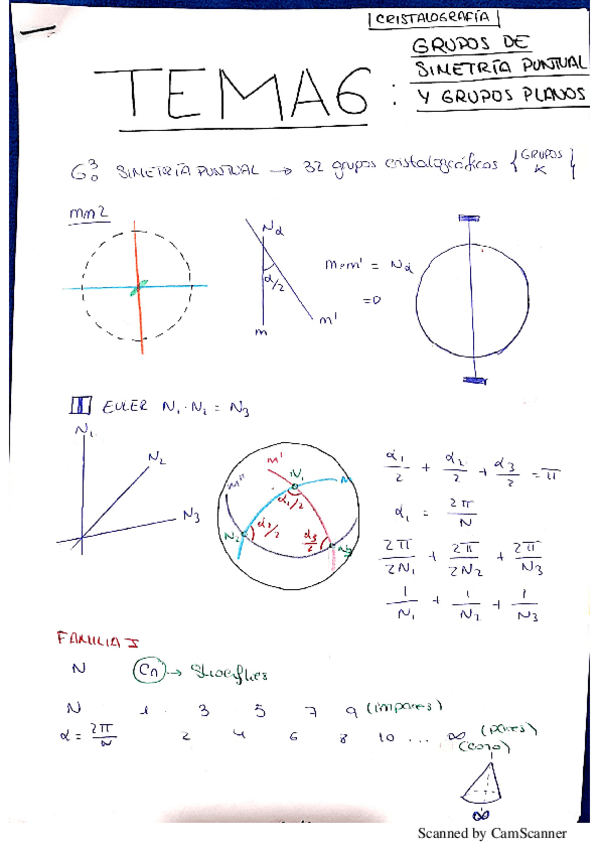 CRISTALOGRAFÍA
TEMA 6 :
GRUPOS DE
SIMETRÍA PUNTUAL
Y GRUPOS PLANOS
G³₀ SIMETRÍA PUNTUAL → 32 grupos cristalográficos { GRUPOS K }
mm2
Nα
α/2
m
m'
m·m' = Nα
=0
II EULER N₁·N₂ = N₃
N₁
N₂
N₃
m'
N₁
m
m''
α₁/2
N₂
α₂/2
α₃/2
N₃
α₁/2 + α₂/2 + α₃/2 = π
α₁ = 2π/N
2π/2N₁ + 2π/2N₂ + 2π/N₃
1/N₁ + 1/N₂ + 1/N₃
FAMILIA I
N Cn →
N 1 3 5 7 9 (impares)
α = 2π/N 2 4 6 8 10 ... ∞ (pares)
(cono)
∞
Scanned by CamScanner